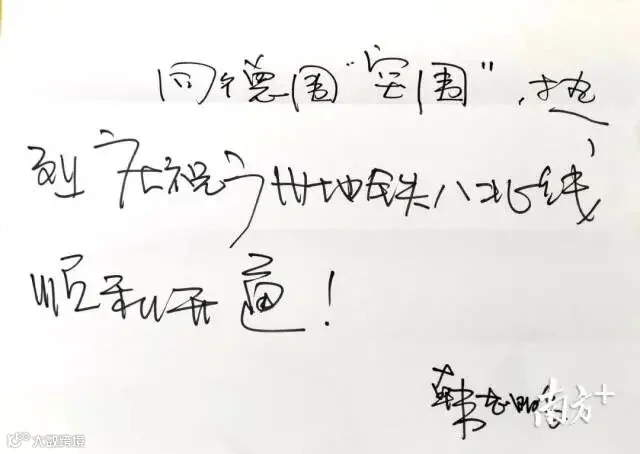 同德围“突围”，热
烈庆祝广州地铁八北线
顺利开通！
韩志鹏
南方+
大数跨境